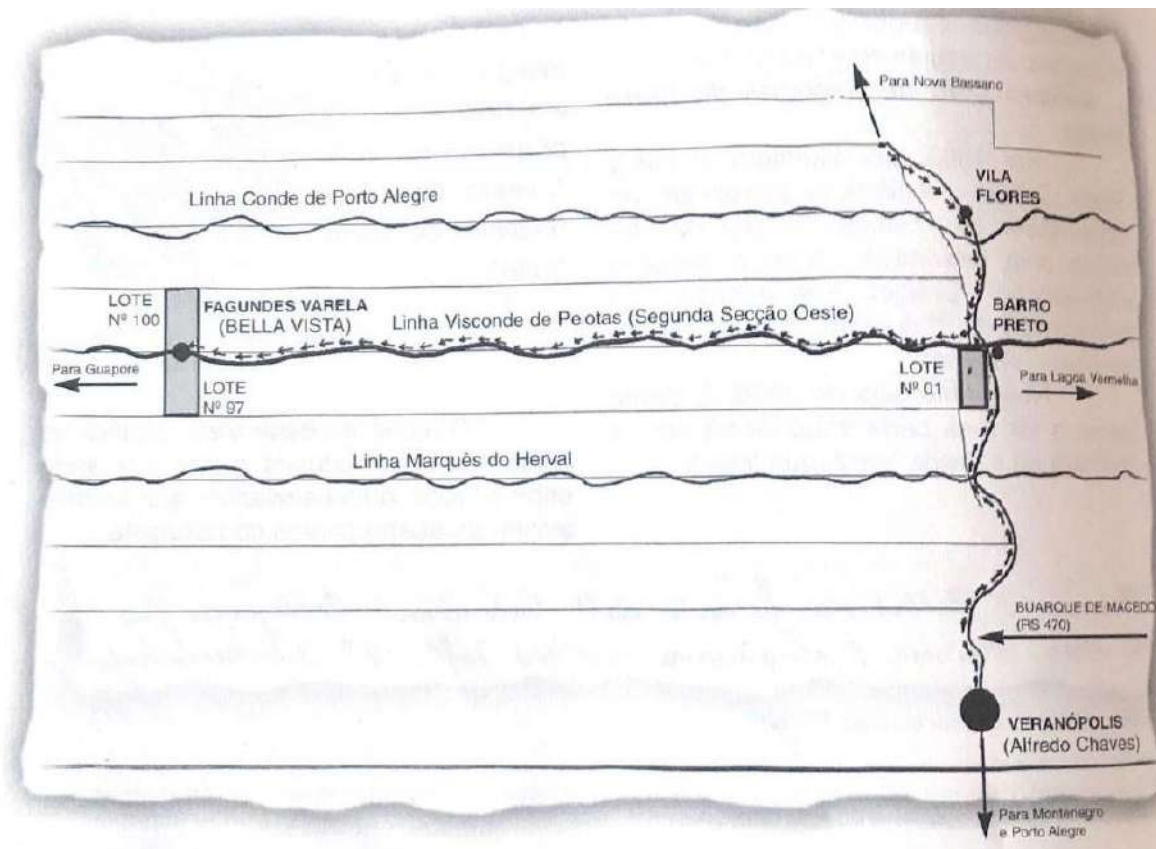 Para Nova Bassano
VILA
FLORES
Linha Conde de Porto Alegre
LOTE
Nº 100
FAGUNDES VARELA
(BELLA VISTA)
Linha Visconde de Pelotas (Segunda Secção Oeste)
BARRO
PRETO
Para Guaporé
LOTE
Nº 97
LOTE
Nº 01
Para Lagoa Vermelha
Linha Marquês do Herval
BUARQUE DE MACEDO
(RS 470)
VERANÓPOLIS
(Alfredo Chaves)
Para Montenegro
e Porto Alegre